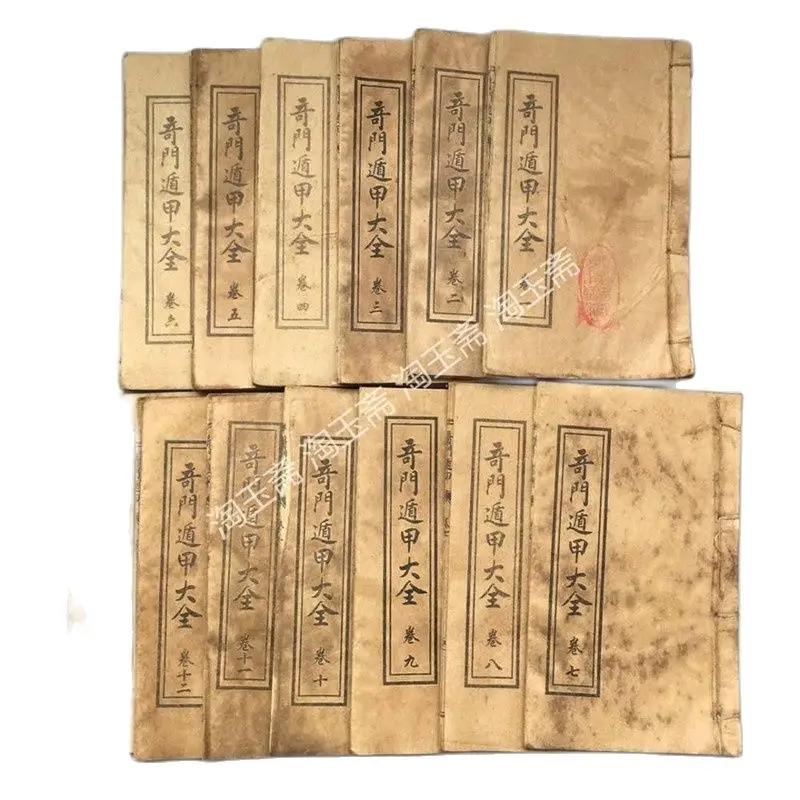 奇門遁甲大全 卷
奇門遁甲大全 卷二
奇門遁甲大全 卷三
奇門遁甲大全 卷四
奇門遁甲大全 卷五
奇門遁甲大全 卷六
奇門遁甲大全 卷七
奇門遁甲大全 卷八
奇門遁甲大全 卷九
奇門遁甲大全 卷十
奇門遁甲大全 卷十一
奇門遁甲大全 卷十二
淘玉斋 淘玉斋 淘玉斋 淘玉斋